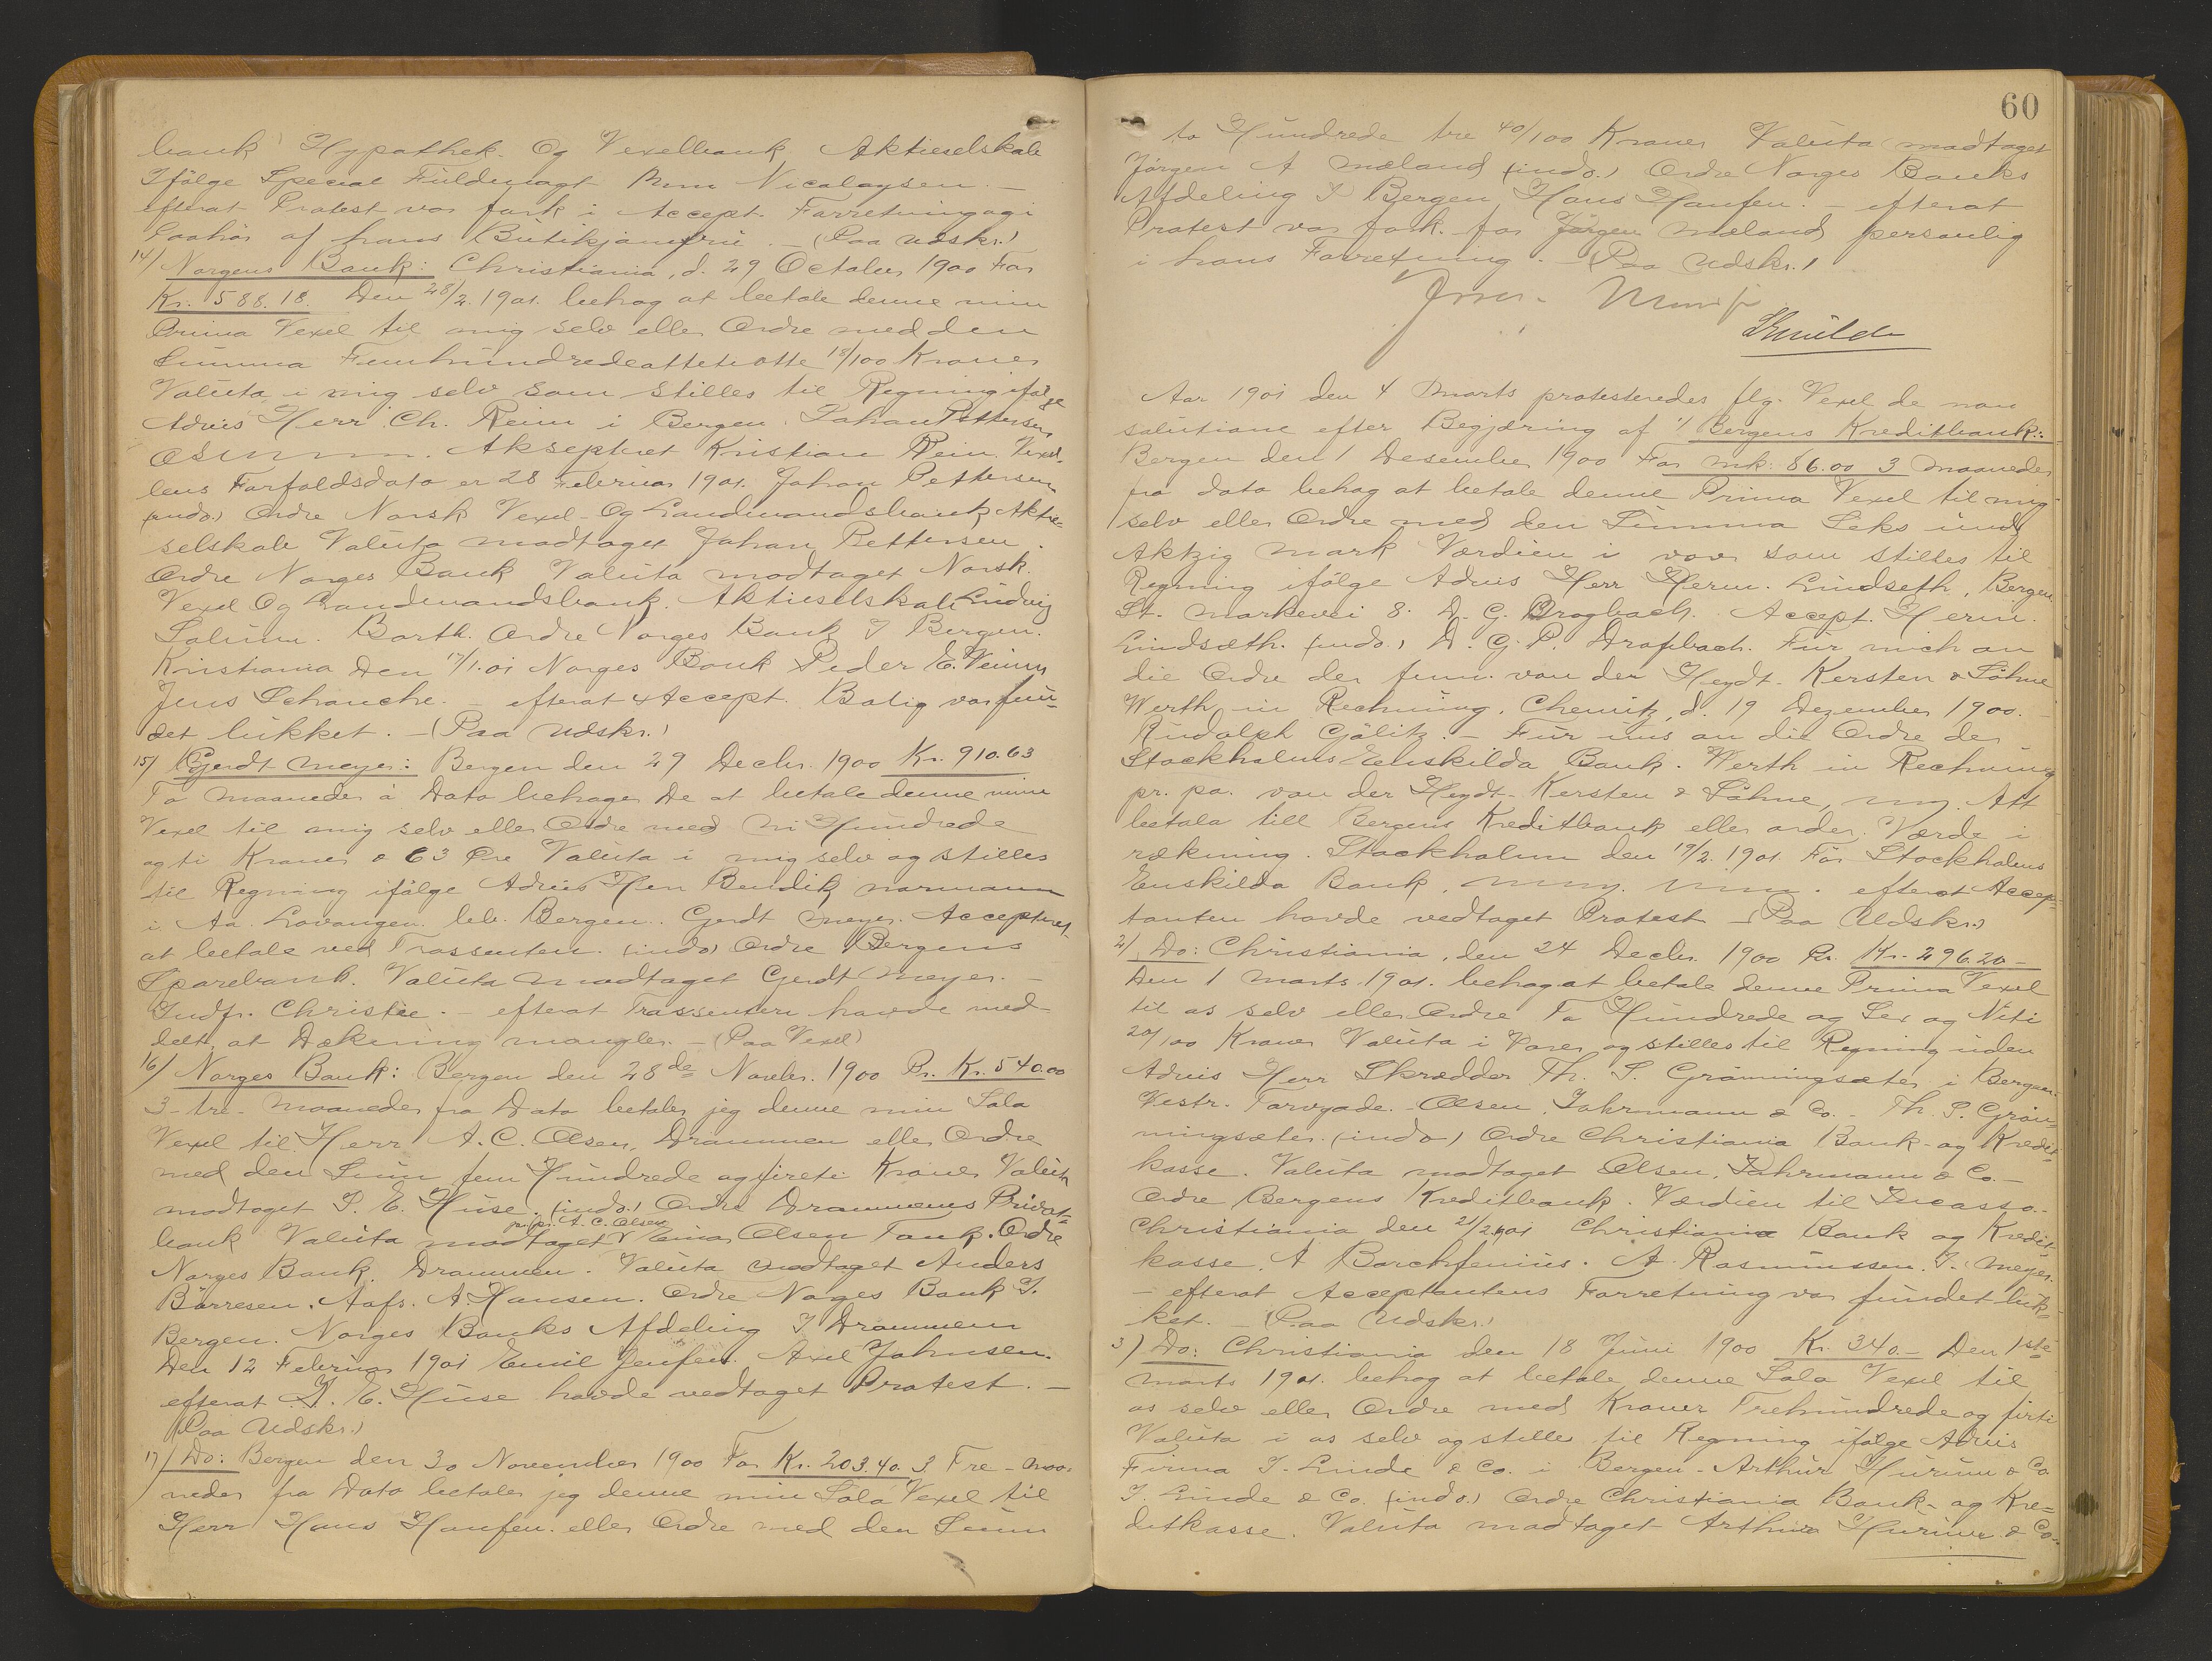 bank Hypothek- Og Vexelbank Aktieselskab
Ifölge Special Fuldmagt Nicolaysen. –
efterat Protest var fork i Accept. Forretning og i
Laahör af hans Butikjomfru. – (Paa Udskr.)
14) Norgens Bank: Christiania, d. 29 October 1900 For
Kr. 588.18. Den 28/2 1901. behag at betale denne min
Prima Vexel til mig selv eller Ordre med den
Summa Femhundredeottetiotte 18/100 Kroner
Valuta i mig selv som stilles til Regning ifølge
Advis Herr Ch. Reim i Bergen. Johan Pettersen
Aksepteret Kristian Reim. Vexel-
lens Forfaldsdato er 28 Februar 1901. Johan Pettersen
(indo.) Ordre Norsk Vexel- Og Landmandsbank Aktie-
selskab Valuta modtaget Johan Pettersen.
Ordre Norges Bank Valuta modtaget Norsk
Vexel Og Landmandsbank. Aktieselskab Ludvig
Solum. Barth. Ordre Norges Bank I Bergen.
Kristiania Den 17/1.01 Norges Bank Peder E.
Jens Schanche. – efterat Accept. Bolig var fun-
det lukket. – (Paa Udskr.)
15) Gerdt Meyer: Bergen den 29 Decbr. 1900 Kr. 910.63
To Maaneder à Dato behager De at betale denne min
Vexel til mig selv eller Ordre med Ni Hundrede
og ti Kroner & 63 Øre Valuta i mig selv og stilles
til Regning ifølge Advis Herr Bendik Normann
i Aa. Lovangen. lev. Bergen. Gerdt Meyer. Accepteret
at betale ved Trassenten. (indo) Ordre Bergens
Sparebank. Valuta modtaget Gerdt Meyer. –
Indfr. Christie. – efterat Trassenten havde med-
delt, at Dækning mangler. – (Paa Vexel)
16) Norges Bank: Bergen den 28de Novbr. 1900 Pr. Kr. 540.00
3- tre- Maaneder fra Dato betaler jeg denne min Sola
Vexel til Herr A. C. Olsen, Drammen eller Ordre
med den Sum fem Hundrede og fireti Kroner Valuta
modtaget S. E. Huse. (indo.) Ordre Drammens Privat-
pr. pr. A. C. Olsen
bank Valuta modtaget Einar Olsen Tank. Ordre
Norges Bank. Drammen. Valuta modtaget Anders
Börresen. Aafr. A. Hansen. Ordre Norges Bank I.
Bergen. Norges Banks Afdeling I Drammen
Den 12 Februar 1901 Emil Jensen. Axel Johnsen.
efterat S. E. Huse havde vedtaget Protest. –
(Paa Udskr.)
17) Do: Bergen den 30 November 1900 For Kr. 203.40. 3 Tre- Maa-
neder fra Dato betaler jeg denne min Sola Vexel til
Herr Hans Hansen. eller Ordre med den Sum
60
to Hundrede tre 40/100 Kroner Valuta modtaget
Jörgen A Mæland (indo.) Ordre Norges Banks
Afdeling I Bergen Hans Hansen. – efterat
Protest var fork. for Jörgen Mæland personlig
i hans Forretning. – (Paa Udskr.)
Aar 1901 den 4 Marts protesteredes flg. Vexel de non
solutione efter Begjæring af 1/ Bergens Kreditbank:
Bergen den 1 Desember 1900 For Mk: 86.00 3 Maaneder
fra dato behag at betale denne Prima Vexel til mig
selv eller Ordre med den Summa Seks und
Aktzig Mark Værdien i varer som stilles til
Regning ifølge Advis Herr Herm. Lindseth, Bergen.
St. Markevei 8. D. G. Accept. Herm.
Lindsæth. (indo.) D. G. P. Für mich an
die Ordre der von der Heydt- Kersten & Söhne
Werth in Rechnung, Chemitz, d. 19 Dezember 1900. –
Rudolph Gölitz. – Für uns an die Ordre der
Stockholms Enskilda Bank. Werth in Rechnung
pr. pa. von der Heydt- Kersten & Söhne, Att
betala till Bergens Kreditbank eller order. Værde i
rækning. Stockholm den 19/2. 1901. För Stockholms
Enskilda Bank. efterat Accep-
tanten havde vedtaget Protest (Paa Udskr.)
2/ Do: Christiania, den 24 Decbr. 1900 Pr. Kr. 296.20 –
Den 1 Marts 1901. behag at betale denne Prima Vexel
til os selv eller Ordre To Hundrede og Sex og Niti
20/100 Kroner Valuta i Varer og stilles til Regning uden
Advis Herr Skrædder Th. S. Grönningsæter i Bergen.
Vestr. Torvgade. – Olsen, Fahrmann & Co. – Th. S. Grön-
ningsæter. (indo) Ordre Christiania Bank- og Kredit-
kasse. Valuta modtaget Olsen, Fahrmann & Co. –
Ordre Bergens Kreditbank. Værdien til Incasso. –
Christiania den 21/2 1901 Christiania Bank og Kredit-
kasse. A Borchfenius. A. Rasmussen. I. Meyer.
– efterat Acceptantens Forretning var fundet luk-
ket. – (Paa Udskr.)
3) Do: Christiania den 18 Juni 1900 Kr. 340. – Den 1ste
Marts 1901. behag at betale denne Sola Vexel til
os selv eller Ordre med Kroner Trehundrede og firti
Valuta i os selv og stilles til Regning ifølge Advis
Firma I. Linde & Co. i Bergen – Arthur Hurum & Co
I. Linde & Co. (indo.) Ordre Christiania Bank- og Kre-
ditkasse. Valuta modtaget Arthur Hurum & Co –